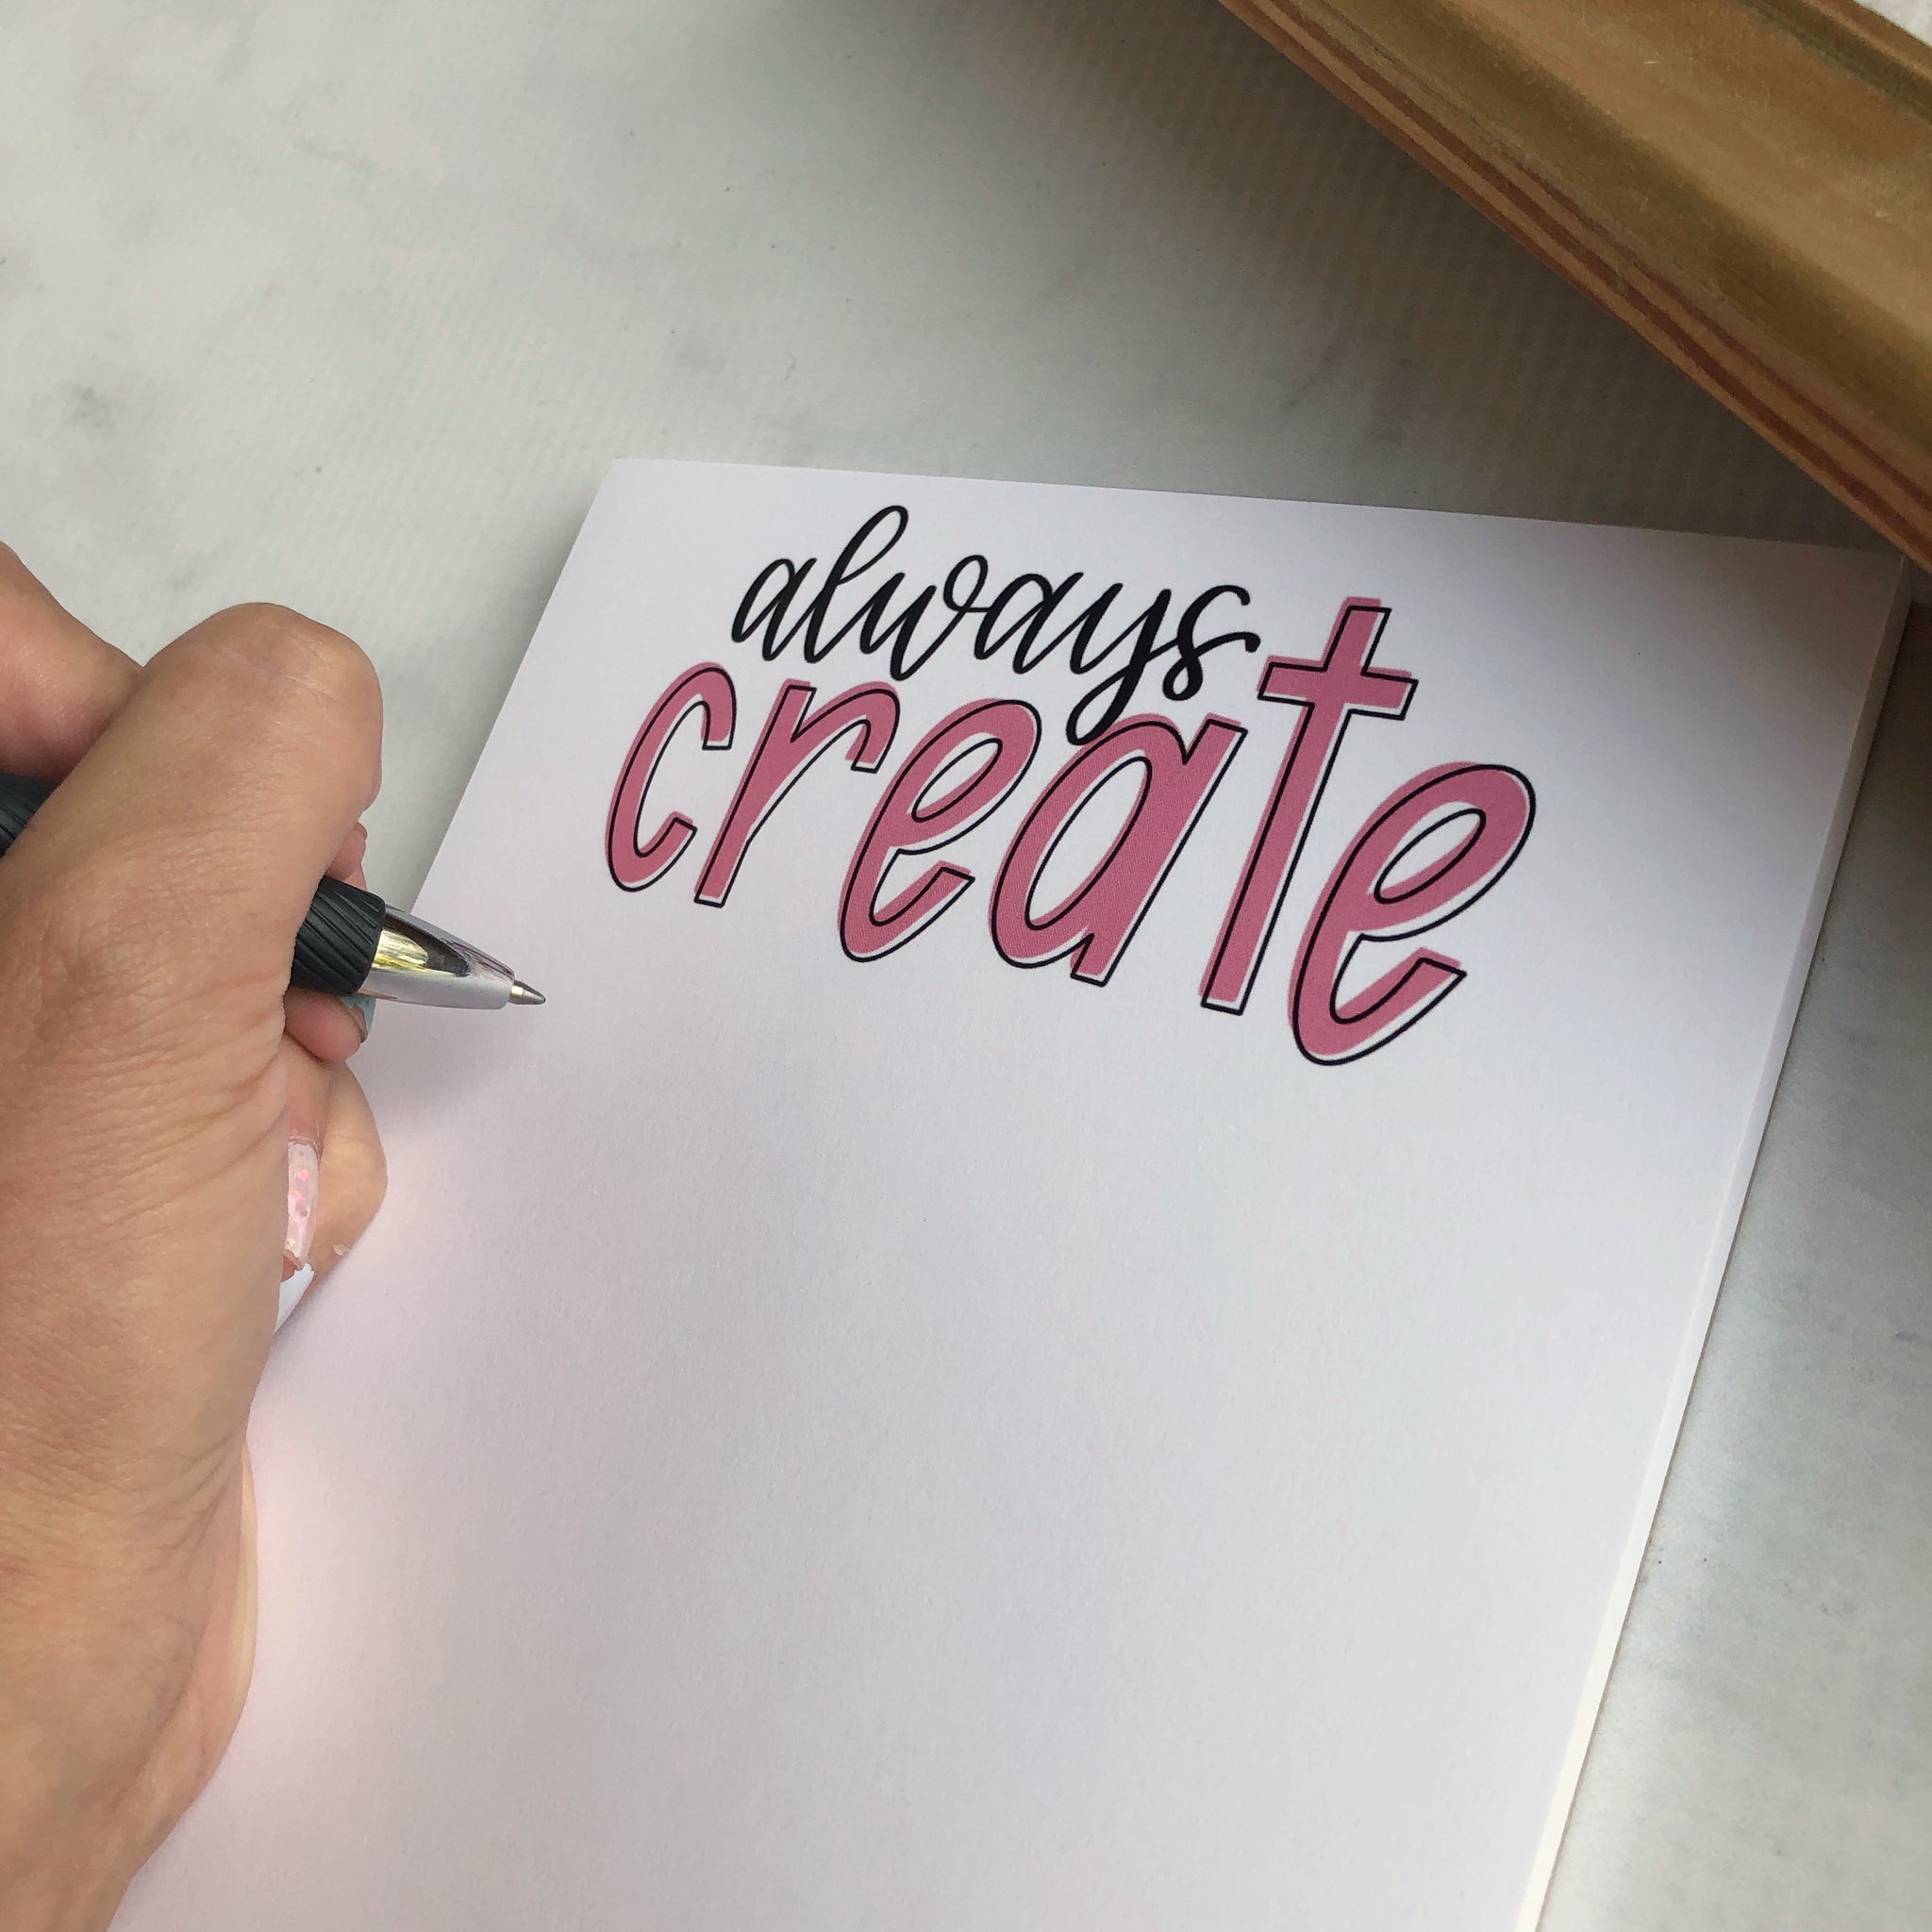 always
create